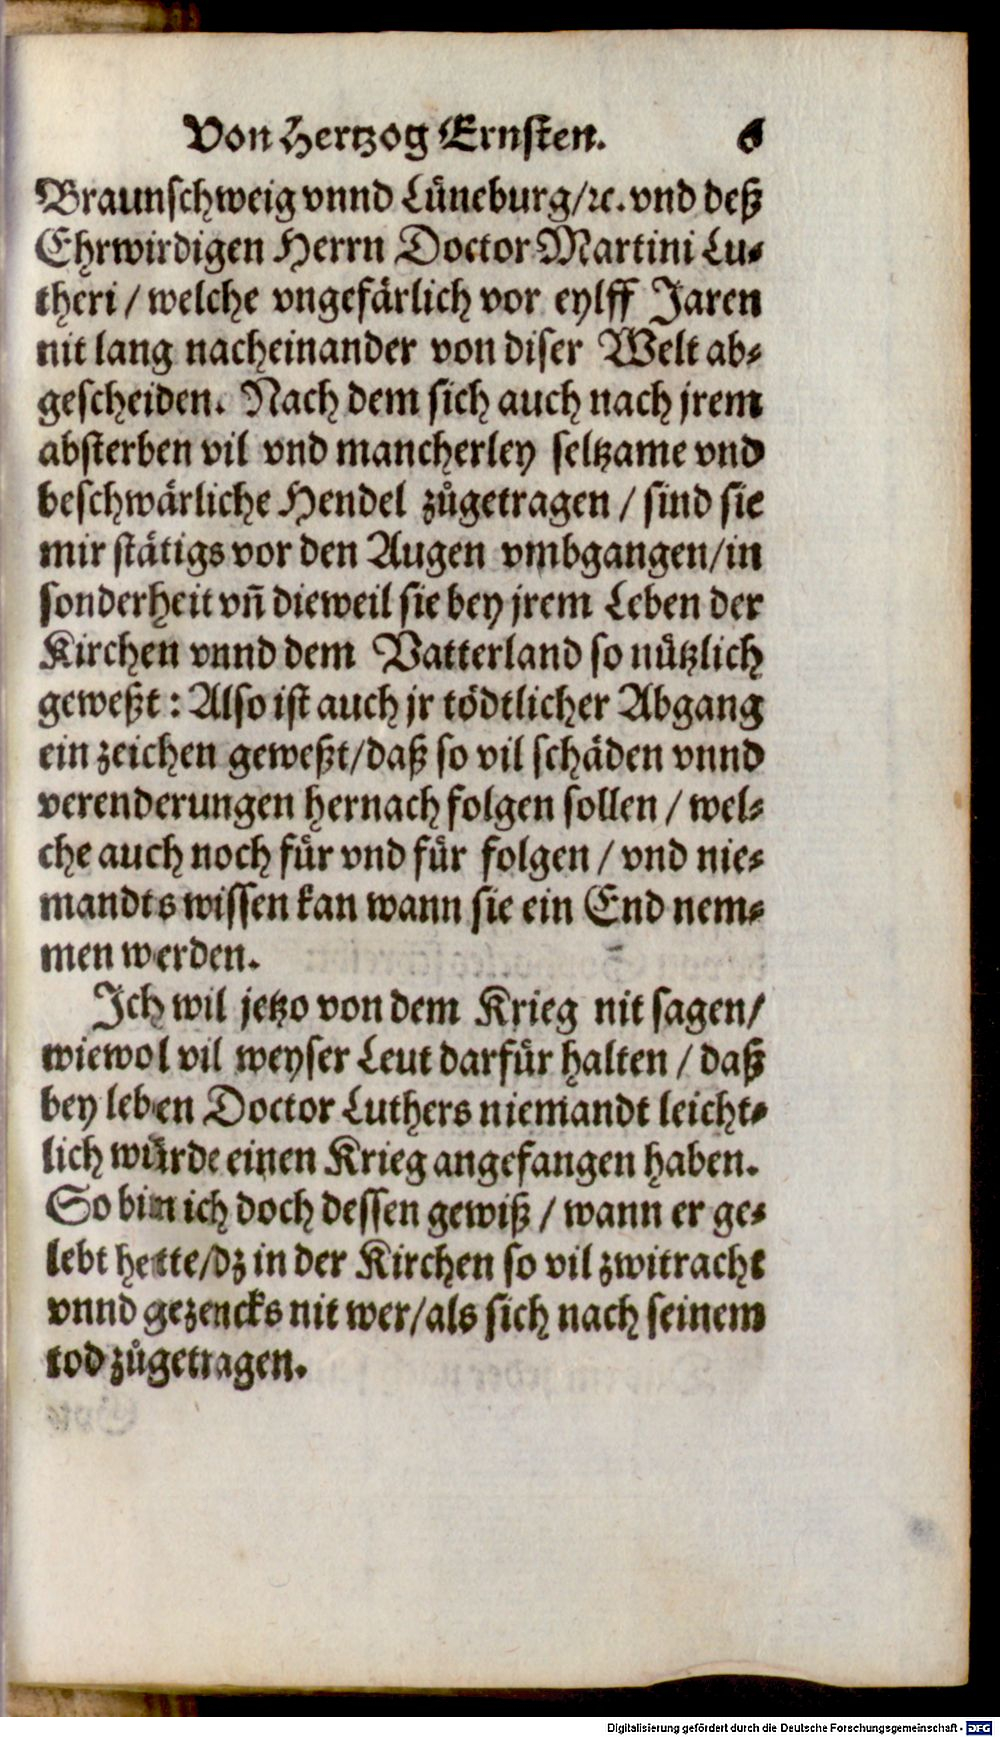 Von Hertzog Ernsten. 6
Braunschweig vnnd Lüneburg/ꝛc. vnd deß
Ehrwirdigen Herrn Doctor Martini Lu-
theri / welche vngefärlich vor eylff Jaren
nit lang nacheinander von diser Welt ab-
gescheiden. Nach dem sich auch nach jrem
absterben vil vnd mancherley seltzame vnd
beschwärliche Hendel zůgetragen / sind sie
mir stätigs vor den Augen vmbgangen/in
sonderheit vñ dieweil sie bey jrem Leben der
Kirchen vnnd dem Vatterland so nützlich
geweßt : Also ist auch jr tödtlicher Abgang
ein zeichen geweßt/daß so vil schäden vnnd
verenderungen hernach folgen sollen / wel-
che auch noch für vnd für folgen / vnd nie-
mandts wissen kan wann sie ein End nem-
men werden.
Ich wil jetzo von dem Krieg nit sagen/
wiewol vil weyser Leut darfür halten / daß
bey leben Doctor Luthers niemandt leicht-
lich würde einen Krieg angefangen haben.
So bin ich doch dessen gewiß / wann er ge-
lebt hette/dz in der Kirchen so vil zwitracht
vnnd gezencks nit wer/als sich nach seinem
tod zůgetragen.
Digitalisierung gefördert durch die Deutsche Forschungsgemeinschaft - DFG